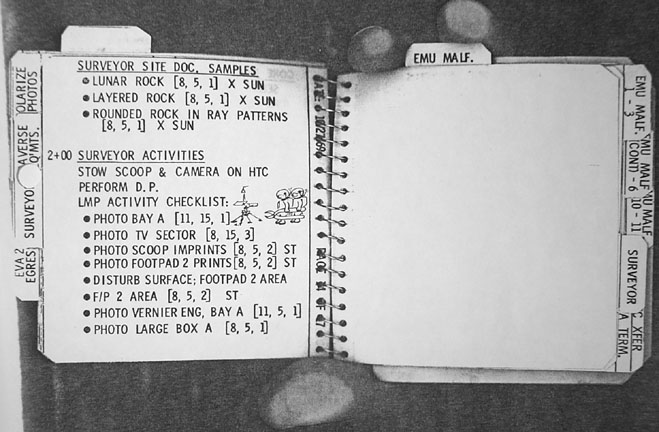 SURVEYOR SITE DOC, SAMPLES
LUNAR ROCK [8, 5, 1] X SUN
LAYERED ROCK [8, 5, 1] X SUN
ROUNDED ROCK IN RAY PATTERNS
[8, 5, 1] X SUN
2+00 SURVEYOR ACTIVITIES
STOW SCOOP & CAMERA ON HTC
PERFORM D.P.
LMP ACTIVITY CHECKLIST:
PHOTO BAY A [11, 15, 1]
PHOTO TV SECTOR [8, 15, 3]
PHOTO SCOOP IMPRINTS [8, 5, 2] ST
PHOTO FOOTPAD 2 PRINTS [8, 5, 2] ST
DISTURB SURFACE; FOOTPAD 2 AREA
F/P 2 AREA [8, 5, 2] ST
PHOTO VERNIER ENG, BAY A [11, 5, 1]
PHOTO LARGE BOX A [8, 5, 1]
OLARIZE
PHOTOS
AVERSE
Q'MTS.
SURVEYO
EVA 2
EGRES
EMU MALF.
EMU MALF.
1 - 3
EMU MALF
(CONT) - 6
NU MALF
10 - 11
SURVEYOR
XFER
A TERM.